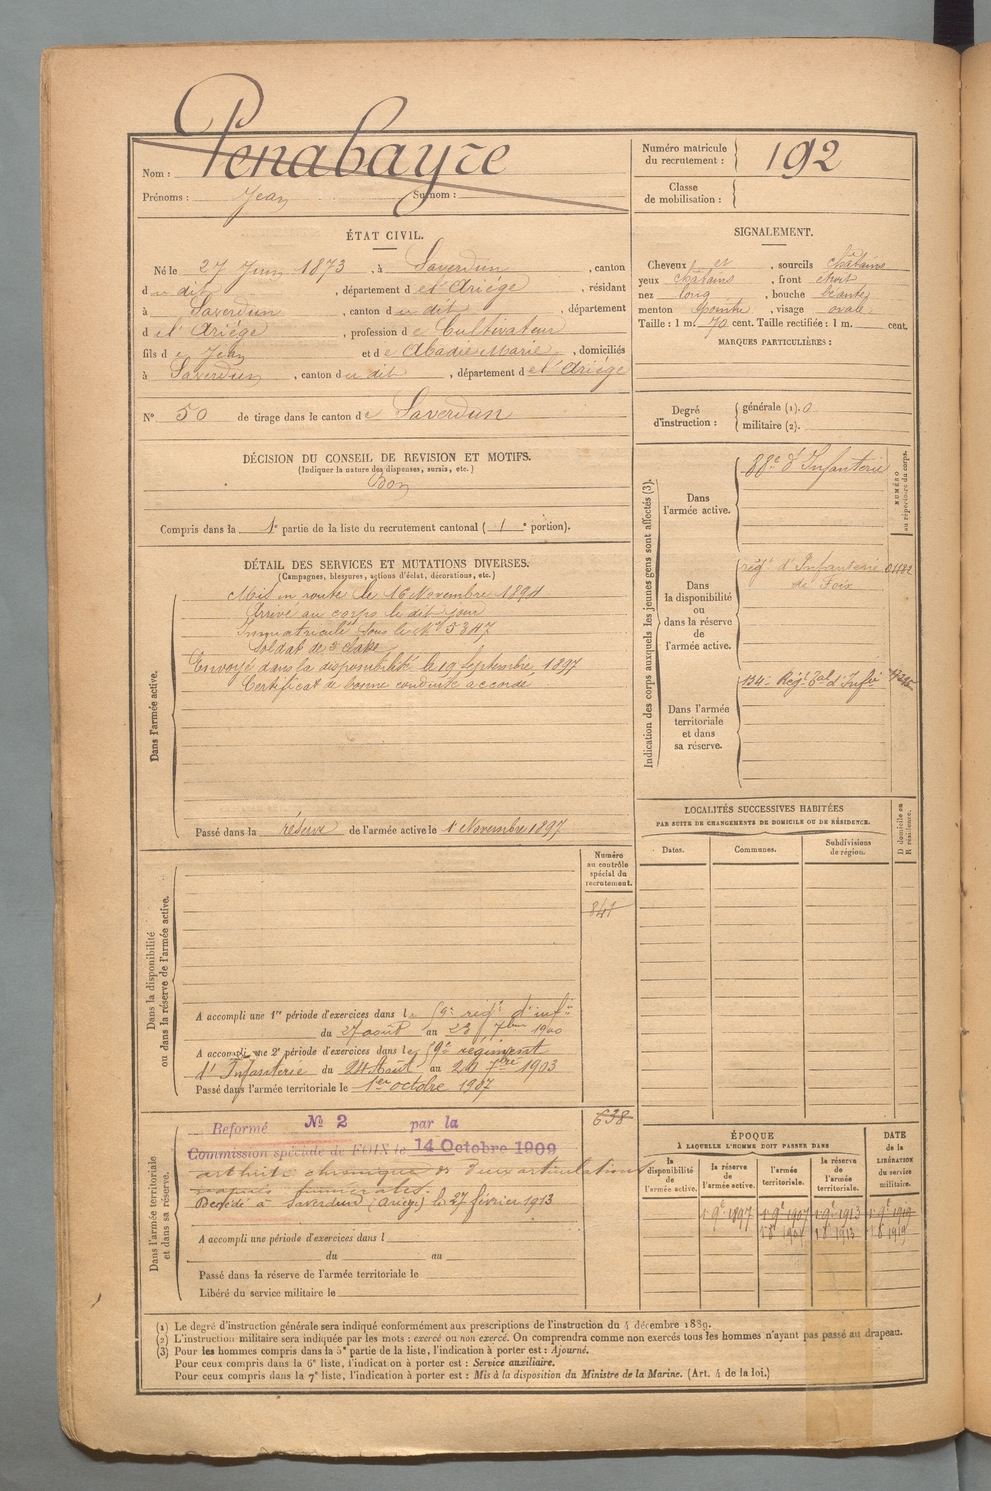 Nom : Penabayre
Prénoms : Jean Surnom :
Numéro matricule du recrutement : 192
Classe de mobilisation :
ÉTAT CIVIL.
Né le 27 Juin 1873, à Saverdun, canton
du dit, département de l'Ariège, résidant
à Saverdun, canton du dit, département
de l'Ariège, profession de Cultivateur
fils de Jean et de Abadie Marie, domiciliés
à Saverdun, canton du dit, département de l'Ariège
N° 50 de tirage dans le canton de Saverdun
DÉCISION DU CONSEIL DE REVISION ET MOTIFS.
(Indiquer la nature des dispenses, sursis, etc.)
Bon
Compris dans la 1e partie de la liste du recrutement cantonal (1e portion).
DÉTAIL DES SERVICES ET MUTATIONS DIVERSES.
(Campagnes, blessures, actions d'éclat, décorations, etc.)
Dans l'armée active.
Mis en route le 16 Novembre 1894
Arrivé au corps le dit jour
Immatriculé sous le No 5347
Soldat de 2e classe
Envoyé dans la disponibilité le 19 Septembre 1897
Certificat de bonne conduite accordé
Passé dans la réserve de l'armée active le 1r Novembre 1897
Dans la disponibilité
ou dans la réserve de l'armée active.
Numéro
au contrôle
spécial du
recrutement.
841
A accompli une 1re période d'exercices dans le 59e régt d'infie
du 27 août au 23 7bre 1900
A accompli une 2e période d'exercices dans le 59e régiment
d'Infanterie du 24 Août au 20 7bre 1903
Passé dans l'armée territoriale le 1er octobre 1907
Dans l'armée territoriale
et dans sa réserve.
638
Reformé No 2 par la
Commission spéciale de FOIX le 14 Octobre 1909
arthrite chronique de deux articulations
Décédé à Saverdun (Ariège) le 27 février 1913
A accompli une période d'exercices dans l
du au
Passé dans la réserve de l'armée territoriale le
Libéré du service militaire le
SIGNALEMENT.
Cheveux et, sourcils châtains
yeux châtains, front étroit
nez long, bouche béante
menton pointu, visage ovale
Taille : 1 m. 70 cent. Taille rectifiée : 1 m. cent.
MARQUES PARTICULIÈRES :
Degré d'instruction : générale (1). 0
militaire (2).
Indication des corps auxquels les jeunes gens sont affectés (3).
NUMÉRO
au répertoire du corps.
Dans
l'armée active.
88e d'Infanterie
Dans
la disponibilité
ou
dans la réserve
de
l'armée active.
régt d'Infanterie 01182
de Foix
Dans l'armée
territoriale
et dans
sa réserve.
134e Régt tal d'Infie
LOCALITÉS SUCCESSIVES HABITÉES
PAR SUITE DE CHANGEMENTS DE DOMICILE OU DE RÉSIDENCE.
Dates. Communes. Subdivisions de région.
D domicile ou
R résidence.
ÉPOQUE
À LAQUELLE L'HOMME DOIT PASSER DANS
DATE
de la
LIBÉRATION
du service
militaire.
la disponibilité de l'armée active.
la réserve de l'armée active.
l'armée territoriale.
la réserve de l'armée territoriale.
1 9e 1897 1 9e 1907 1 9e 1913 1 9e 1919
(1) Le degré d'instruction générale sera indiqué conformément aux prescriptions de l'instruction du 4 décembre 1889.
(2) L'instruction militaire sera indiquée par les mots : exercé ou non exercé. On comprendra comme non exercés tous les hommes n'ayant pas passé au drapeau.
(3) Pour les hommes compris dans la 5e partie de la liste, l'indication à porter est : Ajourné.
Pour ceux compris dans la 6e liste, l'indication à porter est : Service auxiliaire.
Pour ceux compris dans la 7e liste, l'indication à porter est : Mis à la disposition du Ministre de la Marine. (Art. 4 de la loi.)